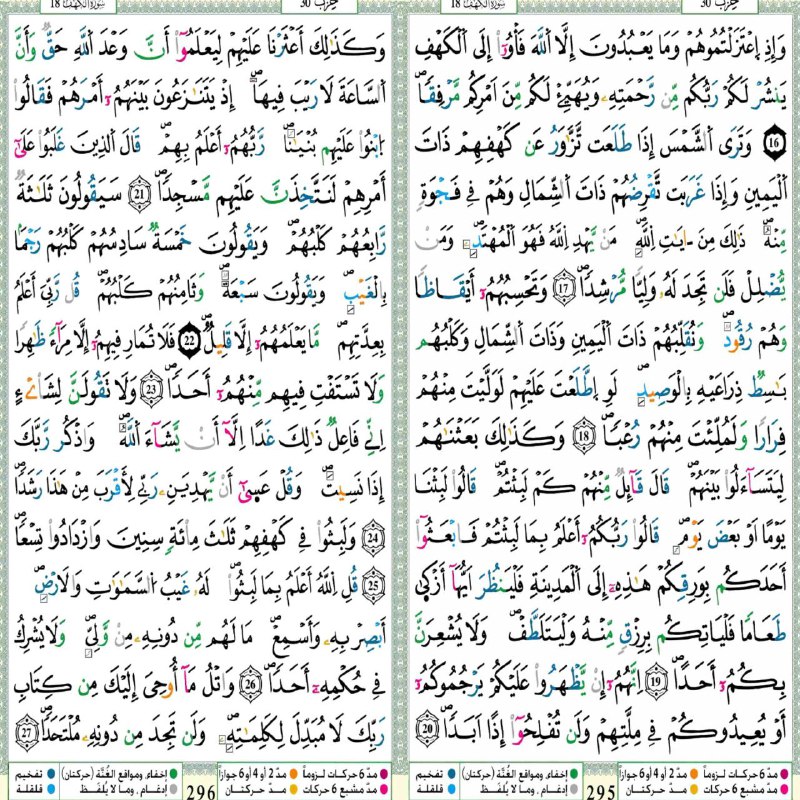 حزب 30
سورة الكهف 18
وَإِذِ اِعْتَزَلْتُمُوهُمْ وَمَا يَعْبُدُونَ إِلَّا اَللَّهَ فَأْوُۥاْ إِلَى اَلْكَهْفِ
يَنشُرْ لَكُمْ رَبُّكُم مِّن رَّحْمَتِهِۦ وَيُهَيِّئْ لَكُم مِّنَ اَمْرِكُم مَّرْفِقًا
16 وَتَرَى اَلشَّمْسَ إِذَا طَلَعَت تَّزَّٰوَرُ عَن كَهْفِهِمْ ذَاتَ
اَلْيَمِينِ وَإِذَا غَرَبَت تَّقْرِضُهُمْ ذَاتَ اَلشِّمَالِ وَهُمْ فِى فَجْوَةٍ
مِّنْهُ ذَٰلِكَ مِنَ اٰيَٰتِ اِللَّهِ مَنْ يَّهْدِ اِللَّهُ فَهُوَ اَلْمُهْتَدِۦ وَمَنْ
يُّضْلِلْ فَلَن تَجِدَ لَهُۥ وَلِيًّا مُّرْشِدًا 17 وَتَحْسِبُهُمُۥٓ أَيْقَاظًا
وَهُمْ رُقُودٌ وَنُقَلِّبُهُمْ ذَاتَ اَلْيَمِينِ وَذَاتَ اَلشِّمَالِ وَكَلْبُهُم
بَٰسِطٌ ذِرَاعَيْهِ بِالْوَصِيدِ لَوِ اِطَّلَعْتَ عَلَيْهِمْ لَوَلَّيْتَ مِنْهُمْ
فِرَارًا وَلَمُلِّئْتَ مِنْهُمْ رُعْبًا 18 وَكَذَٰلِكَ بَعَثْنَٰهُمْ
لِيَتَسَآءَلُواْ بَيْنَهُمْ قَالَ قَآئِلٌ مِّنْهُمْ كَمْ لَبِثْتُمْ قَالُواْ لَبِثْنَا
يَوْمًا اَوْ بَعْضَ يَوْمٍ قَالُواْ رَبُّكُمُۥٓ أَعْلَمُ بِمَا لَبِثْتُمْ فَابْعَثُوٓاْ
أَحَدَكُم بِوَرِقِكُمْ هَٰذِهِۦٓ إِلَى اَلْمَدِينَةِ فَلْيَنظُرَ اَيُّهَآ أَزْكَىٰ
طَعَامًا فَلْيَاتِكُم بِرِزْقٍ مِّنْهُ وَلْيَتَلَطَّفْ وَلَا يُشْعِرَنَّ
بِكُمُۥٓ أَحَدًا 19 اِنَّهُمُۥٓ إِنْ يَّظْهَرُواْ عَلَيْكُمْ يَرْجُمُوكُمُۥٓ
أَوْ يُعِيدُوكُمْ فِى مِلَّتِهِمْ وَلَن تُفْلِحُوٓاْ إِذًا اَبَدًا 20
مدّ 6 حركات لزوماً مدّ 2 أو 4 أو 6 جوازاً إخفاء، ومواقع الغُنّة (حركتان) تفخيم
مدّ مشبع 6 حركات مدّ حركتان إدغام، وما لا يُلفَظ قلقلة
295
حزب 30
سورة الكهف 18
وَكَذَٰلِكَ أَعْثَرْنَا عَلَيْهِمْ لِيَعْلَمُوٓاْ أَنَّ وَعْدَ اَللَّهِ حَقٌّ وَأَنَّ
اَلسَّاعَةَ لَا رَيْبَ فِيهَا إِذْ يَتَنَٰزَعُونَ بَيْنَهُمُۥٓ أَمْرَهُمْ فَقَالُواْ
اُبْنُواْ عَلَيْهِم بُنْيَٰنًا رَّبُّهُمُۥٓ أَعْلَمُ بِهِمْ قَالَ اَلذِينَ غَلَبُواْ عَلَىٰٓ
أَمْرِهِمْ لَنَتَّخِذَنَّ عَلَيْهِم مَّسْجِدًا 21 سَيَقُولُونَ ثَلَٰثَةٌ
رَّابِعُهُمْ كَلْبُهُمْ وَيَقُولُونَ خَمْسَةٌ سَادِسُهُمْ كَلْبُهُمْ رَجْمًا
بِالْغَيْبِ وَيَقُولُونَ سَبْعَةٌ وَثَامِنُهُمْ كَلْبُهُمْ قُل رَّبِّىَ أَعْلَمُ
بِعِدَّتِهِم مَّا يَعْلَمُهُمُۥٓ إِلَّا قَلِيلٌ 22 فَلَا تُمَارِ فِيهِمُۥٓ إِلَّا مِرَآءً ظَٰهِرًا
وَلَا تَسْتَفْتِ فِيهِم مِّنْهُمُۥٓ أَحَدًا 23 وَلَا تَقُولَنَّ لِشَاْىْءٍ
اِنِّى فَاعِلٌ ذَٰلِكَ غَدًا اِلَّآ أَنْ يَّشَآءَ اَللَّهُ وَاذْكُر رَّبَّكَ
إِذَا نَسِيتَ وَقُلْ عَسَىٰٓ أَنْ يَّهْدِيَنِۦ رَبِّى لِأَقْرَبَ مِنْ هَٰذَا رَشَدًا
24 وَلَبِثُواْ فِى كَهْفِهِمْ ثَلَٰثَ مِاْئَةٍ سِنِينَ وَازْدَادُواْ تِسْعًا
25 قُلِ اِللَّهُ أَعْلَمُ بِمَا لَبِثُواْ لَهُۥ غَيْبُ اُلسَّمَٰوَٰتِ وَالَارْضِ
أَبْصِرْ بِهِۦ وَأَسْمِعْ مَا لَهُم مِّن دُونِهِۦ مِنْ وَّلِىٍّ وَلَا يُشْرِكُ
فِى حُكْمِهِۦٓ أَحَدًا 26 وَاتْلُ مَآ أُوحِىَ إِلَيْكَ مِن كِتَابِ
رَبِّكَ لَا مُبَدِّلَ لِكَلِمَٰتِهِۦ وَلَن تَجِدَ مِن دُونِهِۦ مُلْتَحَدًا 27
مدّ 6 حركات لزوماً مدّ 2 أو 4 أو 6 جوازاً إخفاء، ومواقع الغُنّة (حركتان) تفخيم
مدّ مشبع 6 حركات مدّ حركتان إدغام، وما لا يُلفَظ قلقلة
296